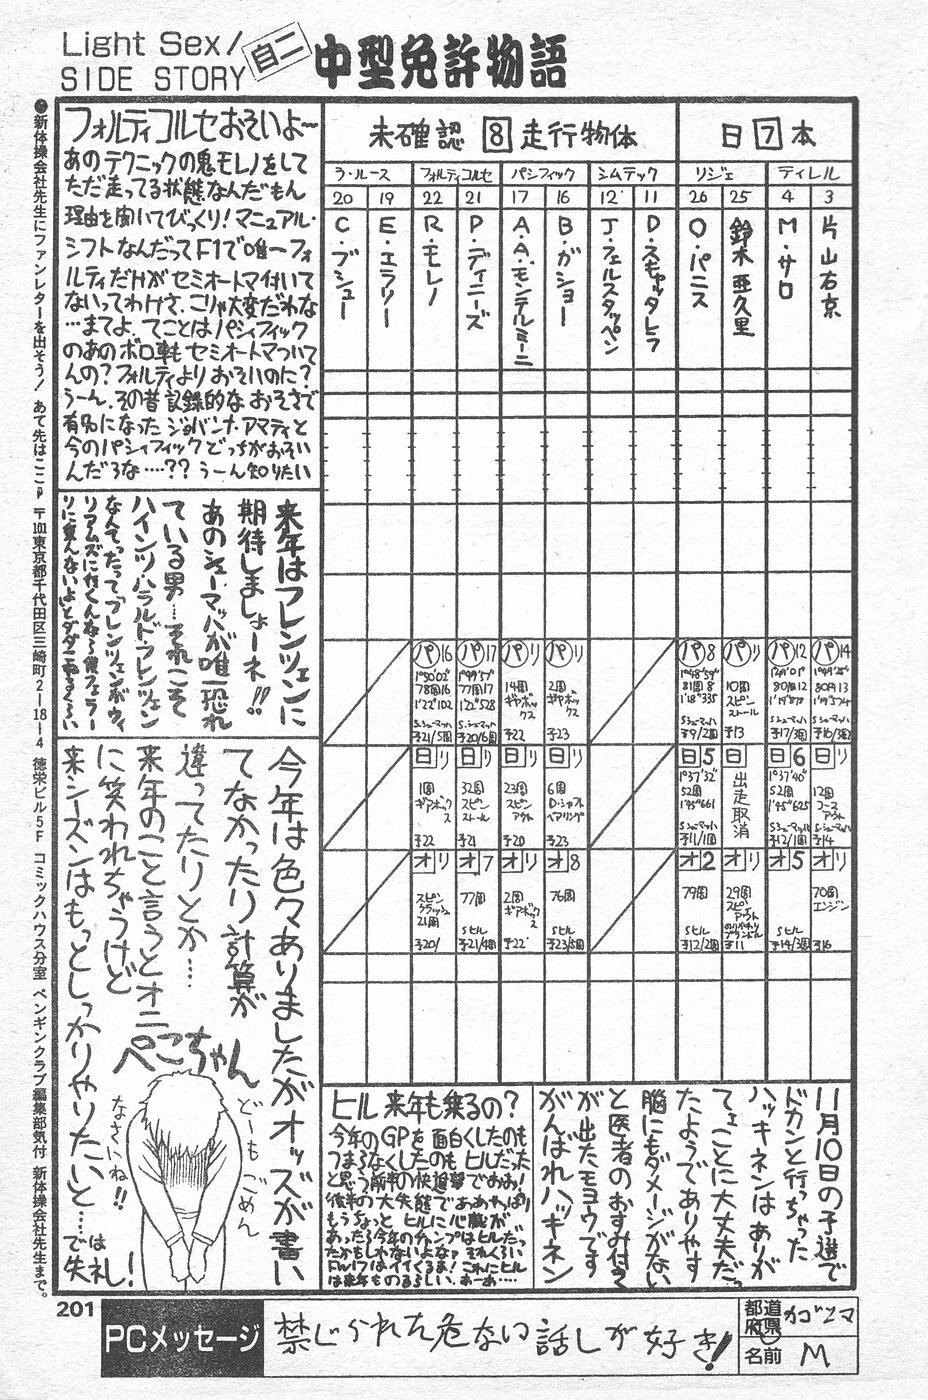 Light Sex/
SIDE STORY
自二
中型免許物語
フォルティコルセおそいよ〜
あのテクニックの鬼モレノをして
ただ走ってる状態なんだもん
理由を聞いてびっくり!マニュアル・
シフトなんだってF1で唯一フォ
ルティだけがセミオートマ付いて
ないってわけさ、こりゃ大変だわな
…まてよ、てことはパシフィック
のあのボロ車もセミオートマついて
んの?フォルティよりおそいのに?
うーん、その昔記録的なおそさで
有名になったジョバンナ・アマティと
今のパシフィックどっちがおそい
んだろな‥‥??うーん知りたい
来年はフレンツェンに
期待しましょーネ!!
あのシューマッハが唯一恐れ
ている男…それこそ
ハインツ・ハラルド・フレンツェン
なんてったって「フレンツェンがウィ
リアムズに行くんなら僕フェラー
今年は色々ありましたがオッズが書い
てなかったり計算が
違ってたりとか……
来年のこと言うとオニ
に笑われちゃうけど
来シーズンはもっとしっかりやりたいと…では
失礼!
ぺこちゃん
どーもごめん
なさいね!!
未確認 8 走行物体
日 7 本
ラ・ルース フォルティコルセ パシフィック シムテック リジェ ティレル
20 19 22 21 17 16 12 11 26 25 4 3
C・ブシュー
E・エラリー
R・モレノ
P・ディニーズ
A・A・モンテルミーニ
B・ガショー
J・フェルスタッペン
D・スキャッタレラ
O・パニス
鈴木亜久里
M・サロ
片山右京
パ16 パ17 パリ パリ パ8 パリ パ12 パ14
1'50"02
78周16
1'22"102
S・シューマッハ
予21/5周
77周17
1'22"528
S・シューマッハ
予20/6周
14周
ギヤボックス
予22
2周
ギヤボックス
予23
81周8
1'18"335
S・シューマッハ
予9/2周
10周
スピン
ストール
予13
80周12
S・シューマッハ
予17/3周
80周13
S・シューマッハ
予16/3周
日リ 日リ 日リ 日リ 日5 日6 日リ
1周
ギアボックス
予22
32周
スピン
ストール
予21
23周
スピン
アウト
予20
6周
D・シャフト
ベアリング
予23
1'37"32
52周
1'45"661
S・シューマッハ
予11/1周
出走取消
1'37"40
52周
1'45"625
S・シューマッハ
予12/1周
12周
コース
アウト
S・シューマッハ
予14
オリ オ7 オリ オ8 オ2 オリ オ5 オリ
スピン
クラッシュ
21周
予20/
77周
Sヒル
予21/4周
2周
ギアボックス
予22
76周
Sヒル
予23/5周
79周
Sヒル
予12/2周
29周
スピン
アウト
予11
Sヒル
予14/3周
70周
エンジン
予16
ヒル来年も乗るの?
今年のGPを面白くしたのも
つまらなくしたのもヒルだった
と思う前半の快進撃でおお!
後半の大失態でああやっぱり
もうちょっとヒルに心臓が
あったら今年のチャンプはヒルだっ
たかもしゃないよなァそれくらい
FW17はイイくるま!これにヒル
は来年ものるらしい、あーあ‥‥
11月10日の予選で
ドカンと行っちゃった
ハッキネンはありが
てェことに大丈夫だっ
たようでありやす
脳にもダメージがない
と医者のおすみ付き
が出たモヨウです
がんばれハッキネン
●新体操会社先生にファンレターを出そう! あて先はここ 〒101東京都千代田区三崎町2−18−4 徳栄ビル5F コミックハウス分室 ペンギンクラブ編集部気付 新体操会社先生まで。
201
PCメッセージ
禁じられた危ない話しが好き!
都道府県
カゴシマ
名前
M